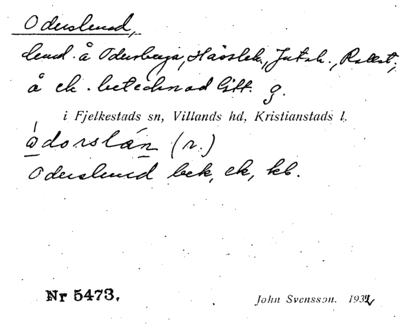 Oderslund,
lund å Odersberga, Hässlek., Jutah., Rallet;
å ek. betecknad litt. g.
i Fjelkestads sn, Villands hd, Kristianstads l.
odorslán (r.)
Oderslund bek, ek, kb.
Nr 5473.
John Svensson. 1932